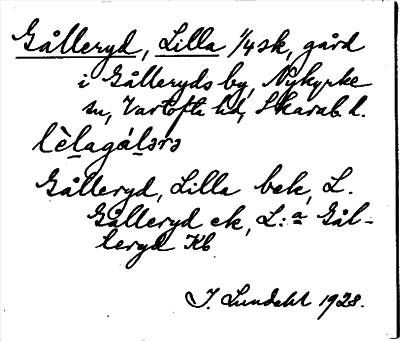 Gålleryd, Lilla 1/4 sk, gård
i Gålleryds by, Nykyrke
sn, Vartofta hd, Skarab. l.
lèlagálərə
Gålleryd, Lilla bek, L.
Gålleryd ek, L:a Gål-
leryd Kb
J. Lundahl 1928.